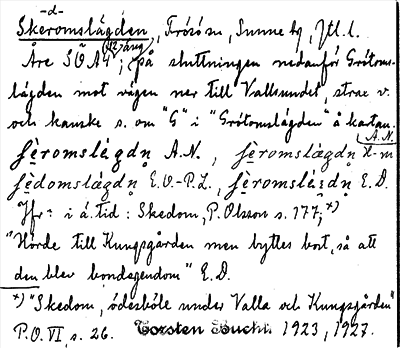 -d-
Skeromslägden, Frösö sn, Sunne tg, Jtl. l.
Åre SÖ A4 (12 äng); på sluttningen nedanför Grötoms-
lägden mot vägen ner till Vallsundet, strax v.
och kanske s. om "G" i "Grötomslägden" å kartan.
A.N.
ʃèromslǽgdn̥ A.N., ʃèromslægdn̥
ʃèdomslǽgdn̥ E.O.-P.L., ʃèromslǽgdn̥ E.D.
Jfr: i ä. tid: Skedom, P. Olsson s. 177; x)
"Hörde till Kungsgården men byttes bort, så att
den blev bondegendom" E.D.
x) "Skedom, ödesböle under Valla och Kungsgården"
P.O. VI, s. 26. Torsten Bucht. 1923, 1927.